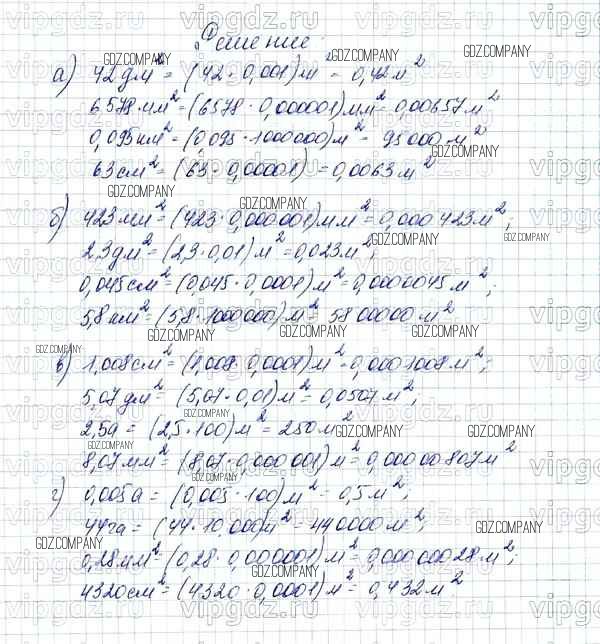 Решение:
а) 42 дм² = (42 · 0,001) м² = 0,42 м²
6578 мм² = (6578 · 0,000001) мм² = 0,00657 м²
0,095 км² = (0,095 · 1000000) м² = 95000 м²
63 см² = (63 · 0,00001) = 0,0063 м²
б) 423 мм² = (423 · 0,000001) мм² = 0,000423 м²;
2,3 дм² = (2,3 · 0,01) м² = 0,023 м²;
0,045 см² = (0,045 · 0,0001) м² = 0,0000045 м²;
5,8 км² = (5,8 · 1000000) м² = 5800000 м²
в) 1,008 см² = (1,008 · 0,0001) м² = 0,0001008 м²;
5,07 дм² = (5,07 · 0,01) м² = 0,0507 м²;
2,5 а = (2,5 · 100) м² = 250 м²
8,07 мм² = (8,07 · 0,000001) м² = 0,00000807 м²
г) 0,005 а = (0,005 · 100) м² = 0,5 м²;
44 га = (44 · 10000) м² = 440000 м²;
0,28 мм² = (0,28 · 0,000001) м² = 0,00000028 м²;
4320 см² = (4320 · 0,0001) м² = 0,432 м²
GDZ.COMPANY
vipgdz.ru